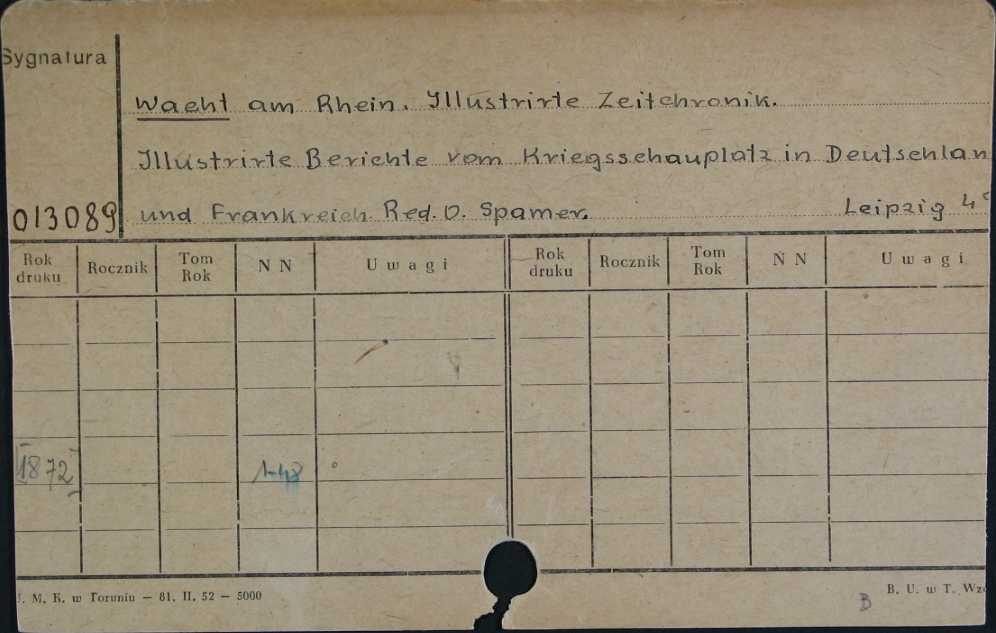 Sygnatura
Wacht am Rhein. Illustrirte Zeitchronik.
Illustrirte Berichte vom Kriegsschauplatz in Deutschlan
013089 und Frankreich. Red. O. Spamer. Leipzig 4°
Rok druku Rocznik Tom Rok N N Uwagi Rok druku Rocznik Tom Rok N N Uwagi
[1872] 1-48
J. M. K. w Toruniu — 81. II. 52 — 5000
B B. U. w T. Wzó